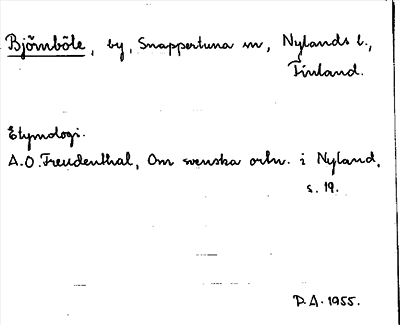 Björnböle, by, Snappertuna sn, Nylands l.,
Finland.
Etymologi.
A.O. Freudenthal, Om svenska ortn. i Nyland,
s. 19.
P.A. 1955.